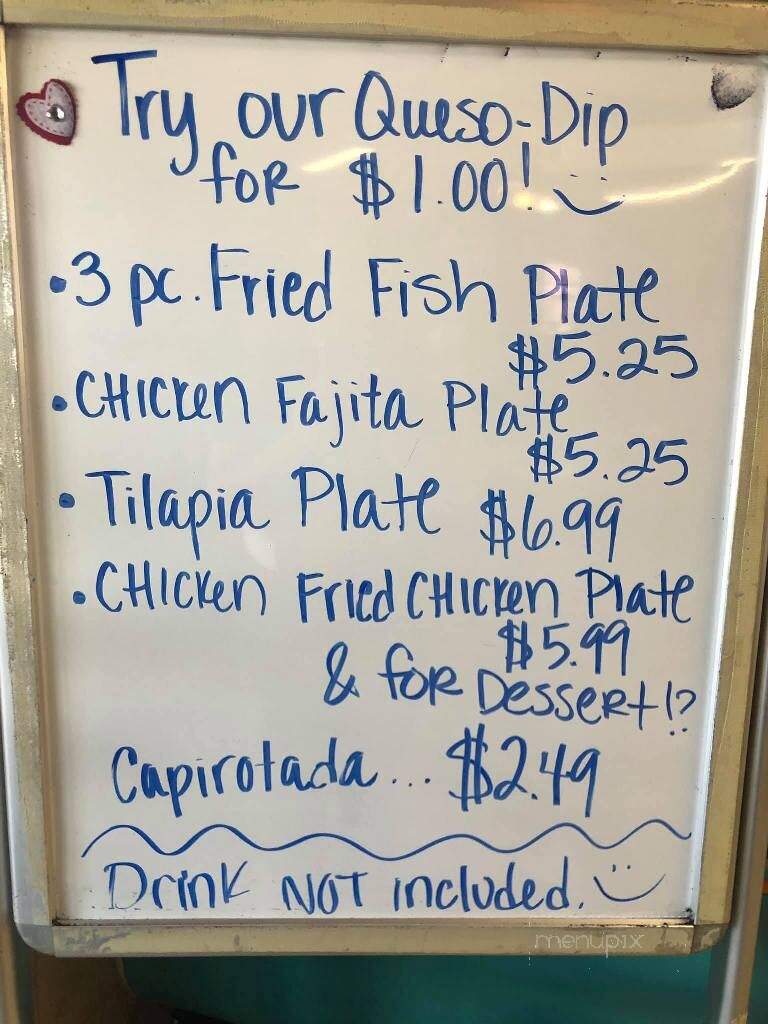 Try our Queso-Dip
for $1.00! :)
•3 pc. Fried Fish Plate
$5.25
•Chicken Fajita Plate
$5.25
•Tilapia Plate $6.99
•Chicken Fried Chicken Plate
$5.99
& for Dessert!?
Capirotada... $2.49
Drink NOT included. :)
menupix